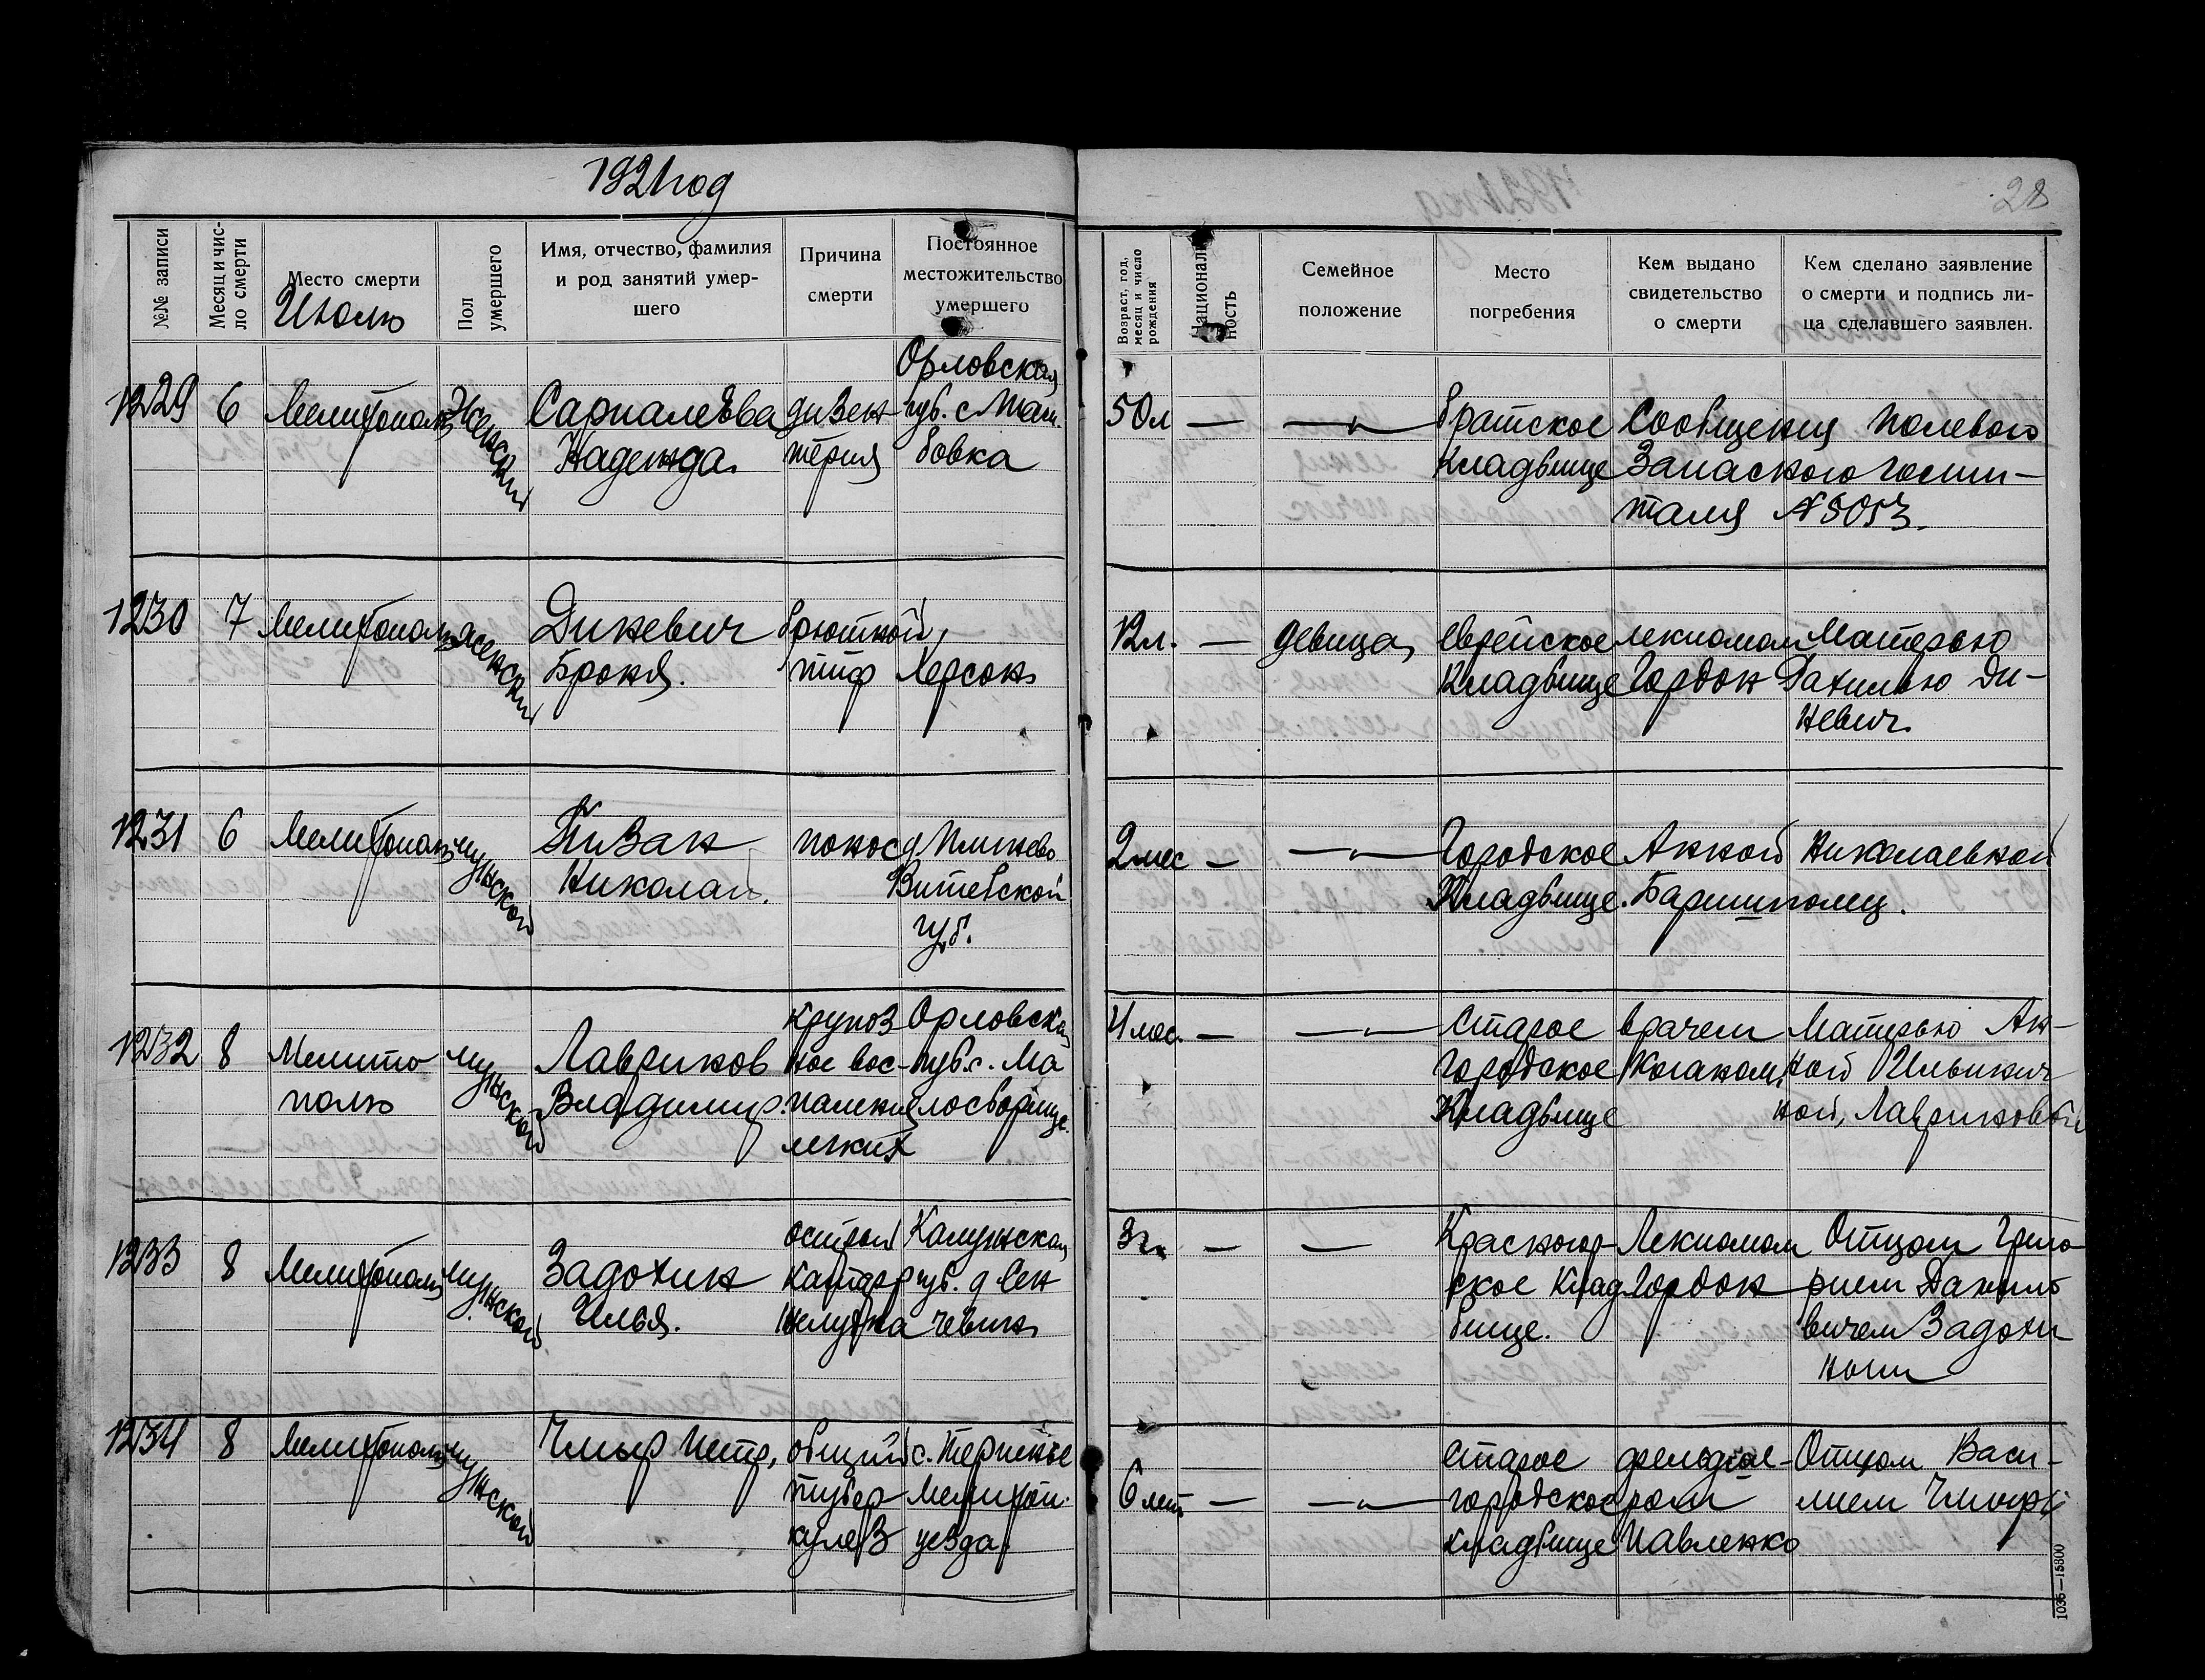 1921 год
28
№№ записи
Месяц и чис-
ло смерти
Место смерти
Июль
Пол
умершего
Имя, отчество, фамилия
и род занятий умер-
шего
Причина
смерти
Постоянное
местожительство
умершего
Возраст, год,
месяц и число
рождения
Националь-
ность
Семейное
положение
Место
погребения
Кем выдано
свидетельство
о смерти
Кем сделано заявление
о смерти и подпись ли-
ца сделавшего заявлен.
1229 6 Мелитополь Женский
Надежда
дизен-
терия
Орловская
губ. с
бовка
50 л — —„—
братское
кладбище
Сообщения полевого
Запасного госпи-
таля №
1230 7 Мелитополь женский
Дикевич
Броня.
брюшной
тиф
Херсон
12 л. — девица
еврейское
кладбище
лекпомом
Гордон
Матерью
Ди-
кевич
1231 6 Мелитополь мужской
Пизак
Николай.
понос
д
Витебской
губ.
2 мес — —„—
Городское
Кладбище.
Анной Николаевной
Баришполец.
1232 8 Мелито
поль
мужской
Лавриков
Владимир.
крупоз
ное вос-
паление
легких
Орловская
губ. с. Ма
лое
4 мес. — —„—
Старое
городское
Кладбище
врачем
Коганом
Матерью Ан-
ной Ильинич
ной, Лавриковой
1233 8 Мелитополь мужской
Задохин
Илья.
острый
катар
желудка
Калужская
губ. д Сен
3 г. — —
Красногор-
ское клад
бище.
Лекпомом
Гордон
Отцом Григо
рием Данило
вичем Задохи
ным
1234 8 Мелитополь мужской
Чмыр Петр,
общий
тубер
кулез
с. Терпенье
Мелитоп.
уезда
6 лет. — —„—
Старое
городское
кладбище
фельдше-
ром
Павленко
Отцом Васи-
лием Чмыр
1035—15800